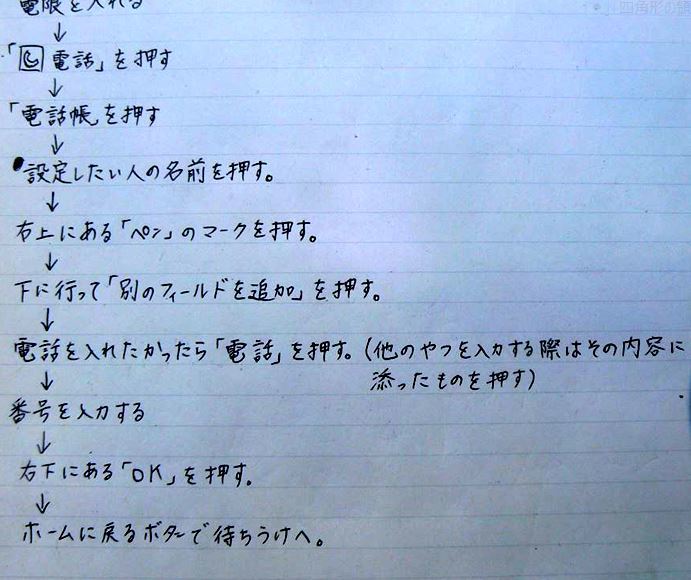 電源を入れる
↓
「電話」を押す
↓
「電話帳」を押す
↓
設定したい人の名前を押す。
↓
右上にある「ペン」のマークを押す。
↓
下に行って「別のフィールドを追加」を押す。
↓
電話を入れたかったら「電話」を押す。(他のやつを入力する際はその内容に
添ったものを押す)
↓
番号を入力する
↓
右下にある「OK」を押す。
↓
ホームに戻るボタンで待ちうけへ。